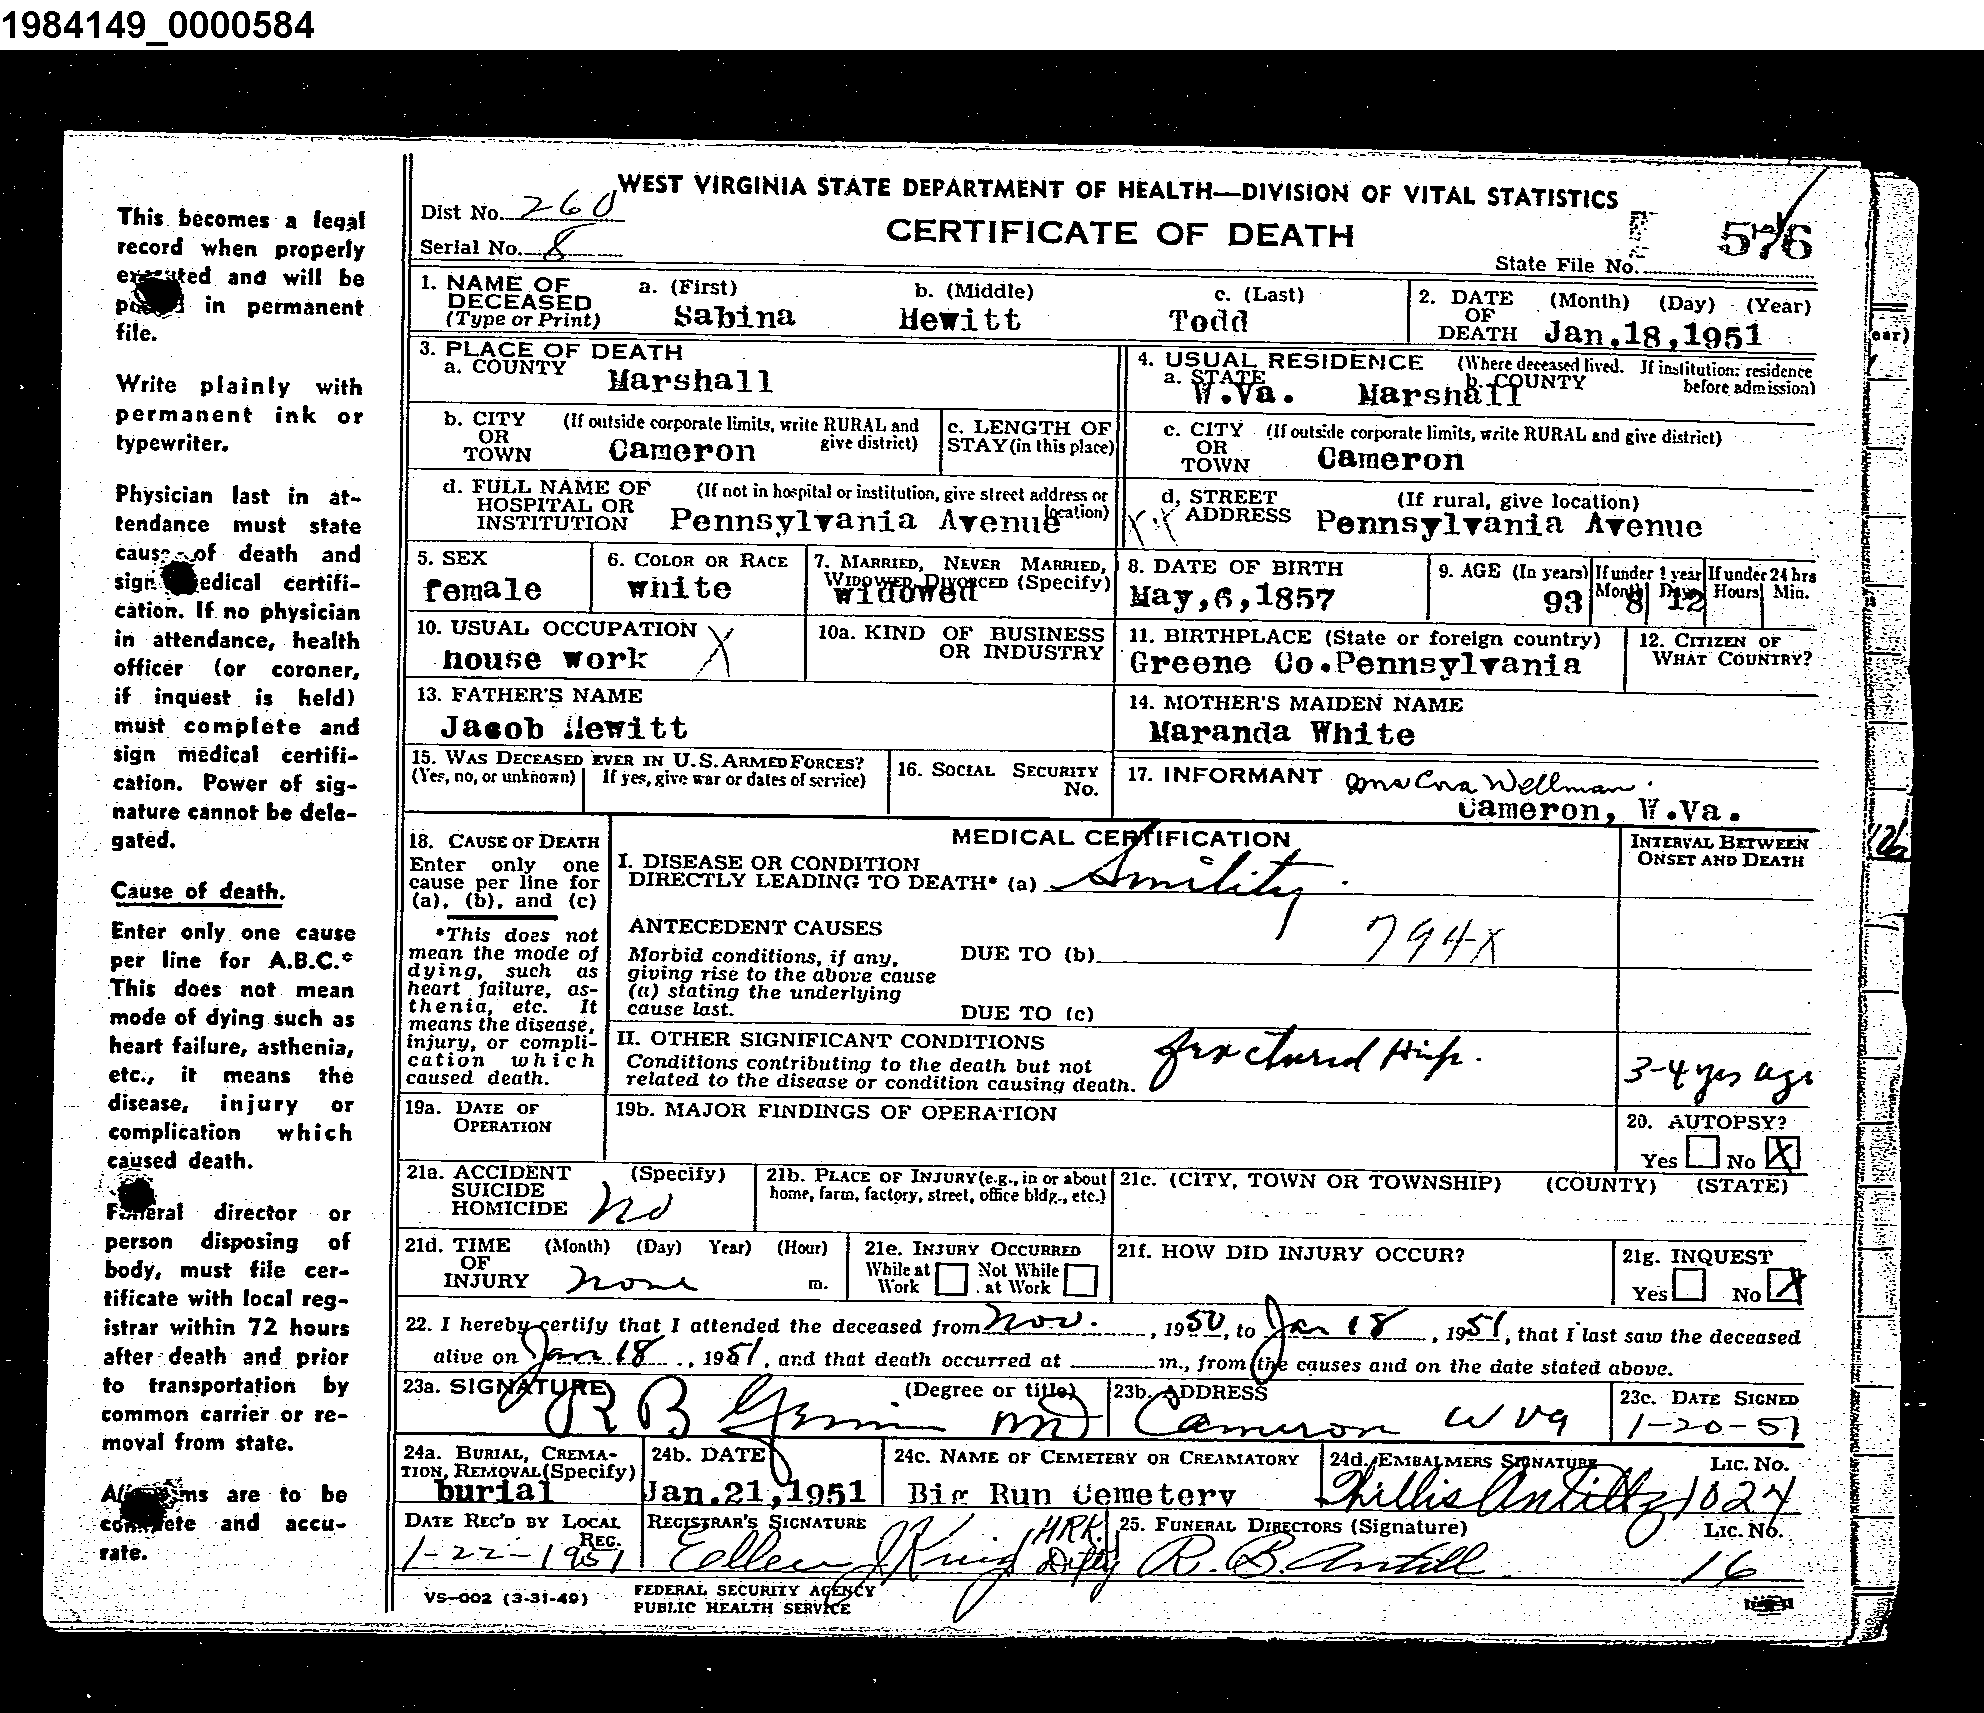 1984149_0000584
This becomes a legal
record when properly
executed and will be
placed in permanent
file.
Write plainly with
permanent ink or
typewriter.
Physician last in at-
tendance must state
cause of death and
sign medical certifi-
cation. If no physician
in attendance, health
officer (or coroner,
if inquest is held)
must complete and
sign medical certifi-
cation. Power of sig-
nature cannot be dele-
gated.
Cause of death.
Enter only one cause
per line for A.B.C.*
This does not mean
mode of dying such as
heart failure, asthenia,
etc., it means the
disease, injury or
complication which
caused death.
Funeral director or
person disposing of
body, must file cer-
tificate with local reg-
istrar within 72 hours
after death and prior
to transportation by
common carrier or re-
moval from state.
All items are to be
complete and accu-
rate.
WEST VIRGINIA STATE DEPARTMENT OF HEALTH—DIVISION OF VITAL STATISTICS
Dist No. 260
CERTIFICATE OF DEATH
Serial No. 8
State File No. 576
1. NAME OF DECEASED (Type or Print) a. (First) Sabina b. (Middle) Hewitt c. (Last) Todd
2. DATE OF DEATH (Month) (Day) (Year) Jan.18,1951
3. PLACE OF DEATH
a. COUNTY Marshall
4. USUAL RESIDENCE (Where deceased lived. If institution: residence before admission)
a. STATE W.Va. b. COUNTY Marshall
b. CITY OR TOWN (If outside corporate limits, write RURAL and give district) Cameron
c. LENGTH OF STAY (in this place)
c. CITY OR TOWN (If outside corporate limits, write RURAL and give district) Cameron
d. FULL NAME OF HOSPITAL OR INSTITUTION (If not in hospital or institution, give street address or location) Pennsylvania Avenue
d. STREET ADDRESS (If rural, give location) Pennsylvania Avenue
5. SEX female
6. COLOR OR RACE white
7. MARRIED, NEVER MARRIED, WIDOWED, DIVORCED (Specify) widowed
8. DATE OF BIRTH May,6,1857
9. AGE (In years) 93 If under 1 year Months 8 Days 12 If under 24 hrs Hours Min.
10. USUAL OCCUPATION house work X
10a. KIND OF BUSINESS OR INDUSTRY
11. BIRTHPLACE (State or foreign country) Greene Co.Pennsylvania
12. CITIZEN OF WHAT COUNTRY?
13. FATHER'S NAME Jacob Hewitt
14. MOTHER'S MAIDEN NAME Maranda White
15. WAS DECEASED EVER IN U.S. ARMED FORCES? (Yes, no, or unknown) If yes, give war or dates of service)
16. SOCIAL SECURITY No.
17. INFORMANT Mrs Cora Wellman.
Cameron, W.Va.
18. CAUSE OF DEATH
Enter only one cause per line for (a), (b), and (c)
*This does not mean the mode of dying, such as heart failure, asthenia, etc. It means the disease, injury, or complication which caused death.
MEDICAL CERTIFICATION
INTERVAL BETWEEN ONSET AND DEATH
I. DISEASE OR CONDITION DIRECTLY LEADING TO DEATH* (a) Senility.
ANTECEDENT CAUSES
Morbid conditions, if any, giving rise to the above cause (a) stating the underlying cause last.
DUE TO (b) 794X
DUE TO (c)
II. OTHER SIGNIFICANT CONDITIONS
Conditions contributing to the death but not related to the disease or condition causing death.
fractured Hip. 3-4 yrs ago
19a. DATE OF OPERATION
19b. MAJOR FINDINGS OF OPERATION
20. AUTOPSY? Yes No X
21a. ACCIDENT SUICIDE HOMICIDE (Specify) no
21b. PLACE OF INJURY (e.g., in or about home, farm, factory, street, office bldg., etc.)
21c. (CITY, TOWN OR TOWNSHIP) (COUNTY) (STATE)
21d. TIME OF INJURY (Month) (Day) Year) (Hour) none m.
21e. INJURY OCCURRED While at Work Not While at Work
21f. HOW DID INJURY OCCUR?
21g. INQUEST Yes No X
22. I hereby certify that I attended the deceased from Nov. , 1950, to Jan 18 , 1951, that I last saw the deceased
alive on Jan 18 , 1951, and that death occurred at m., from the causes and on the date stated above.
23a. SIGNATURE (Degree or title) R B MD
23b. ADDRESS Cameron W Va
23c. DATE SIGNED 1-20-51
24a. BURIAL, CREMATION, REMOVAL (Specify) burial
24b. DATE Jan.21,1951
24c. NAME OF CEMETERY OR CREAMATORY Big Run Cemetery
24d. EMBALMERS SIGNATURE Lic. No. 1024
DATE REC'D BY LOCAL REG. 1-22-1951
REGISTRAR'S SIGNATURE
25. FUNERAL DIRECTORS (Signature) R. B. Antill Lic. No. 16
VS-002 (3-31-49)
FEDERAL SECURITY AGENCY
PUBLIC HEALTH SERVICE